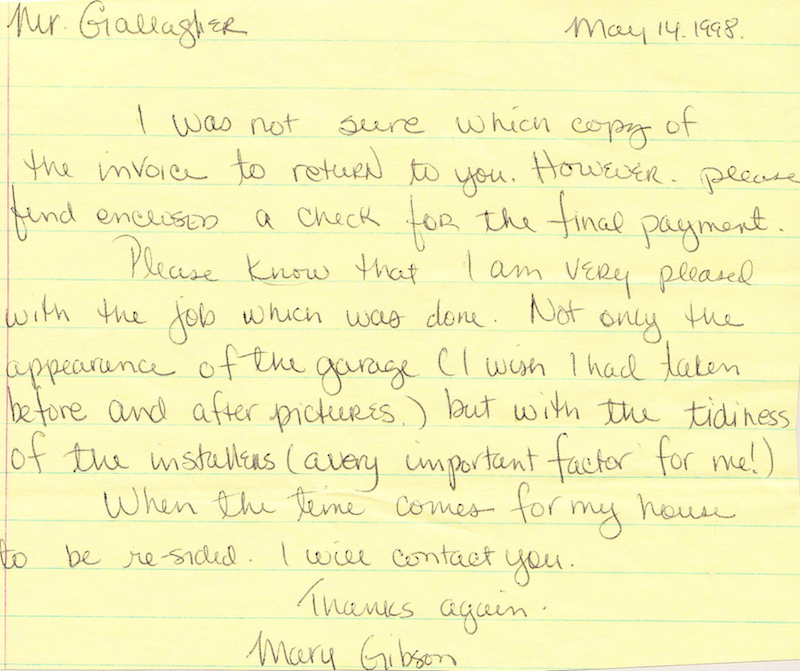 Mr. Gallagher May 14. 1998.
I was not sure which copy of
the invoice to return to you. However. please
find enclosed a check for the final payment.
Please know that I am very pleased
with the job which was done. Not only the
appearance of the garage (I wish I had taken
before and after pictures.) but with the tidiness
of the installers (a very important factor for me!)
When the time comes for my house
to be re-sided. I will contact you.
Thanks again.
Mary Gibson